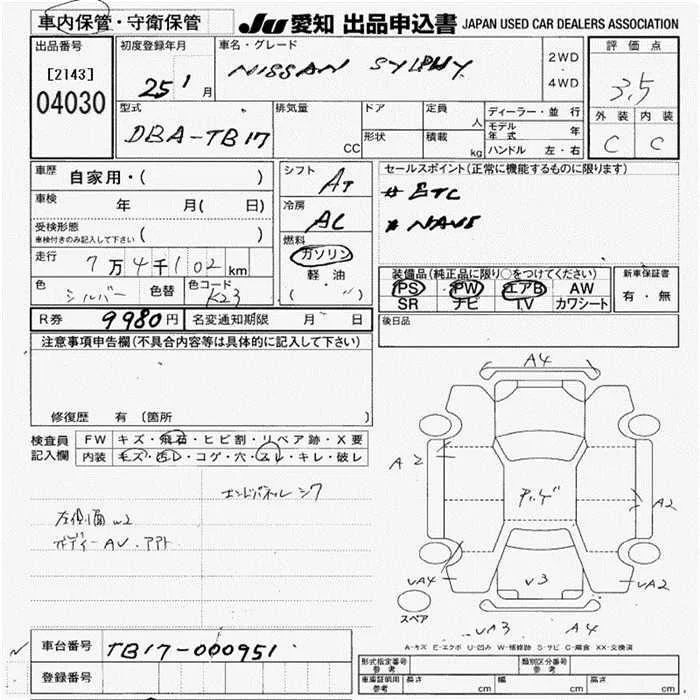 車内保管・守衛保管
JU 愛知 出品申込書 JAPAN USED CAR DEALERS ASSOCIATION
出品番号
[2143]
04030
初度登録年月
25 1 月
車名・グレード
NISSAN SYLPHY
2WD
4WD
評価点
3.5
外装 内装
C C
型式
DBA-TB17
排気量
CC
ドア
形状
定員
人
積載
kg
ディーラー・並行
モデル年式 年
ハンドル 左・右
車歴
自家用・( )
車検
年 月( 日)
受検形態
(車検付きのみ記入して下さい)( )
走行
7万4千102km
色
シルバー
色替
色コード
K23
シフト
AT
冷房
AC
燃料
ガソリン
軽油
( )
セールスポイント(正常に機能するものに限ります)
# ETC
# NAVI
装備品(純正品に限り○をつけてください)
PS PW エアB AW
SR ナビ TV カワシート
新車保証書
有・無
R券 9980円
名変通知期限 月 日
後日品
注意事項申告欄(不具合内容等は具体的に記入して下さい)
修復歴 有 〔箇所 〕
検査員記入欄
FW キズ・飛石・ヒビ割・リペア跡・X要
内装 キズ・汚レ・コゲ・穴・スレ・キレ・破レ
エンドパネルシワ
左側面 W2
ボディーAV・アアト
A4
A2
A2
UA4
V3
UA2
スペア
A4
A-キズ E-エクボ U-凹み W-補修跡 S-サビ C-腐食 XX-交換済
車台番号
TB17-000951
登録番号
型式指定番号
参考
類別区分番号
参考
車庫証明用
参考
長さ cm
幅 cm
高さ cm